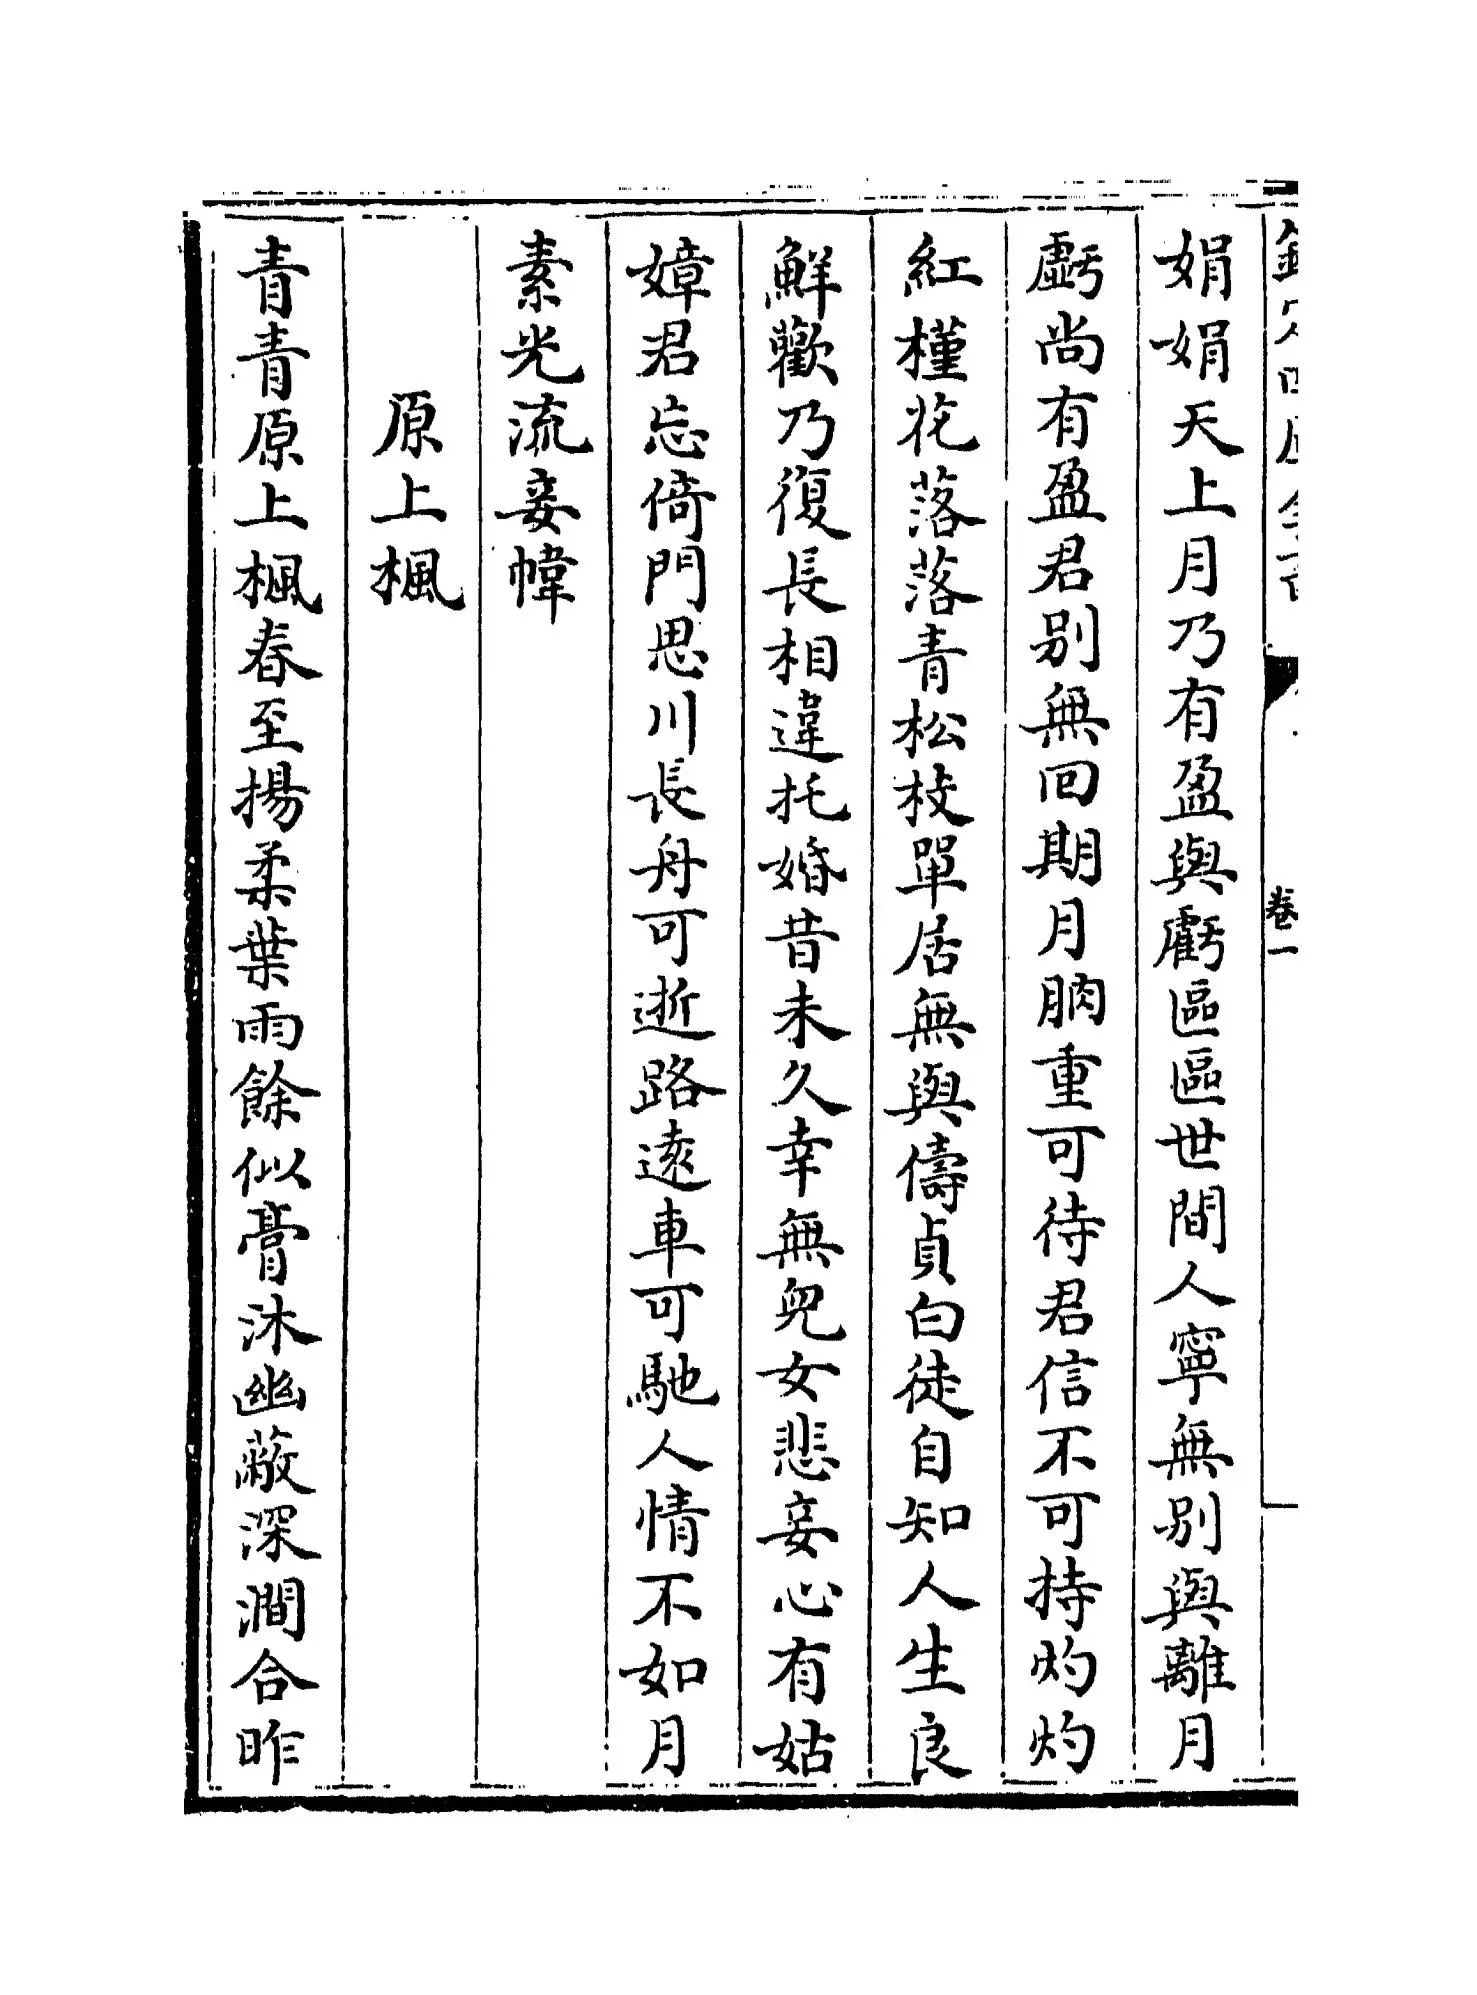 欽定四庫全書
卷一
娟娟天上月乃有盈與虧區區世間人寧無別與離月
虧尚有盈君別無回期月朒重可待君信不可持灼灼
紅槿花落落青松枝單居無與儔貞白徒自知人生良
鮮歡乃復長相違托婚昔未久幸無兒女悲妾心有姑
嫜君忘倚門思川長舟可逝路遠車可馳人情不如月
素光流妾幃
原上楓
青青原上楓春至揚柔葉雨餘似膏沐幽蔽深澗合昨